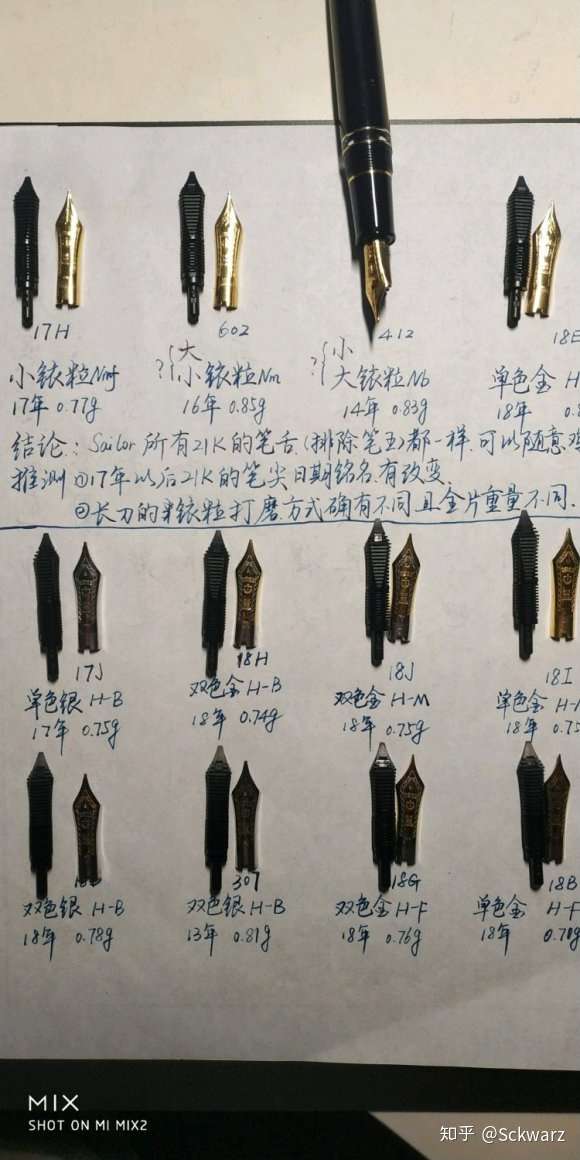 17H 602 412 18E
大 小
?{小铱粒Nm ?{大铱粒Nb
小铱粒Nmf 单色金 H
17年 0.77g 16年 0.85g 14年 0.83g 18年 0.8
结论: Sailor 所有21K的笔舌(排除笔王)都一样,可以随意
推测 ①17年以后21K的笔尖日期铭名有改变.
②长刀的铱粒打磨方式确有不同且金片重量不同.
17J 18H 18J 18I
单色银 H-B 双色金 H-B 双色金 H-M 单色金 H-
17年 0.75g 18年 0.74g 18年 0.75g 18年 0.75
307 18G 18B
双色银 H-B 双色银 H-B 双色金 H-F 单色金 H-F
18年 0.78g 13年 0.81g 18年 0.76g 18年
MIX
SHOT ON MI MIX2
知乎 @Sckwarz